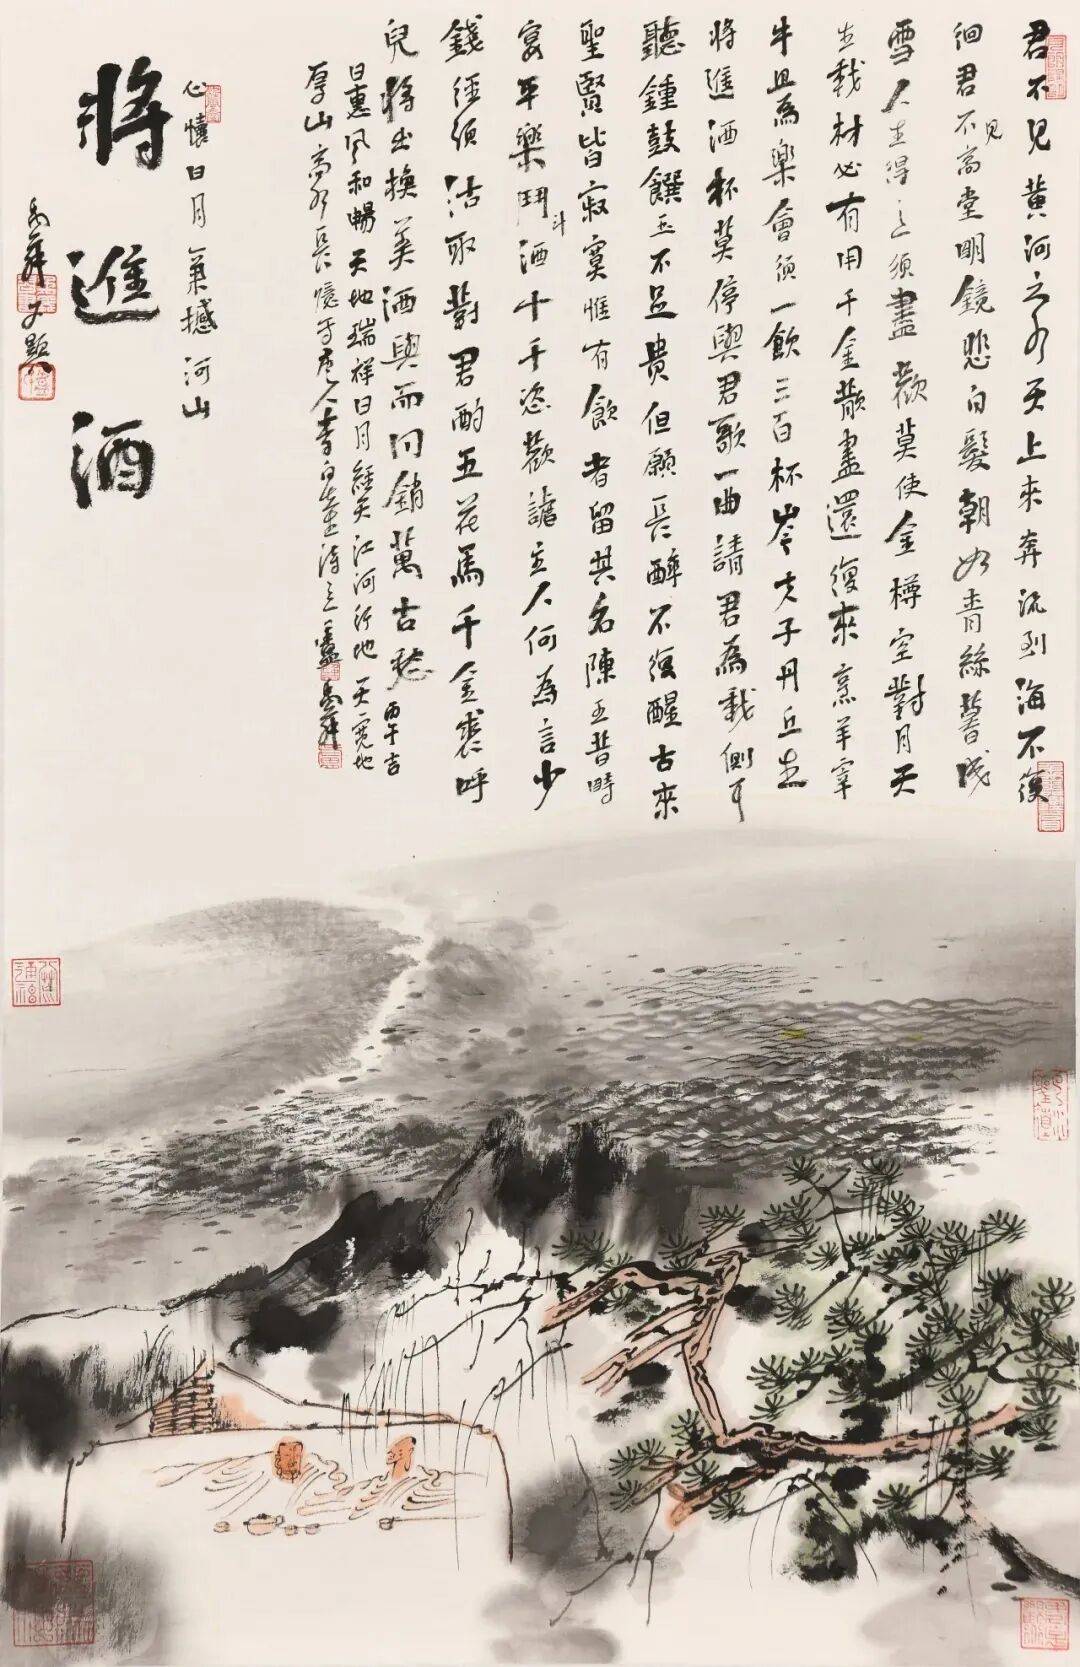 君不見黃河之水天上來奔流到海不復
徊君不見高堂明鏡悲白髮朝如青絲暮成
雪人生得意須盡歡莫使金樽空對月天
生我材必有用千金散盡還復來烹羊宰
牛且為樂會須一飲三百杯岑夫子丹丘生
將進酒杯莫停與君歌一曲請君為我側耳
聽鍾鼓饌玉不足貴但願長醉不復醒古來
聖賢皆寂寞惟有飲者留其名陳王昔時
宴平樂鬥斗酒十千恣歡謔主人何為言少
錢徑須沽取對君酌五花馬千金裘呼
兒將出換美酒與爾同銷萬古愁 丙午吉
日惠風和暢天地瑞祥日月經天江河行地天寬地
厚山高水長憶寫唐人李白詩意畫
心懷日月氣撼河山
將進酒
又題